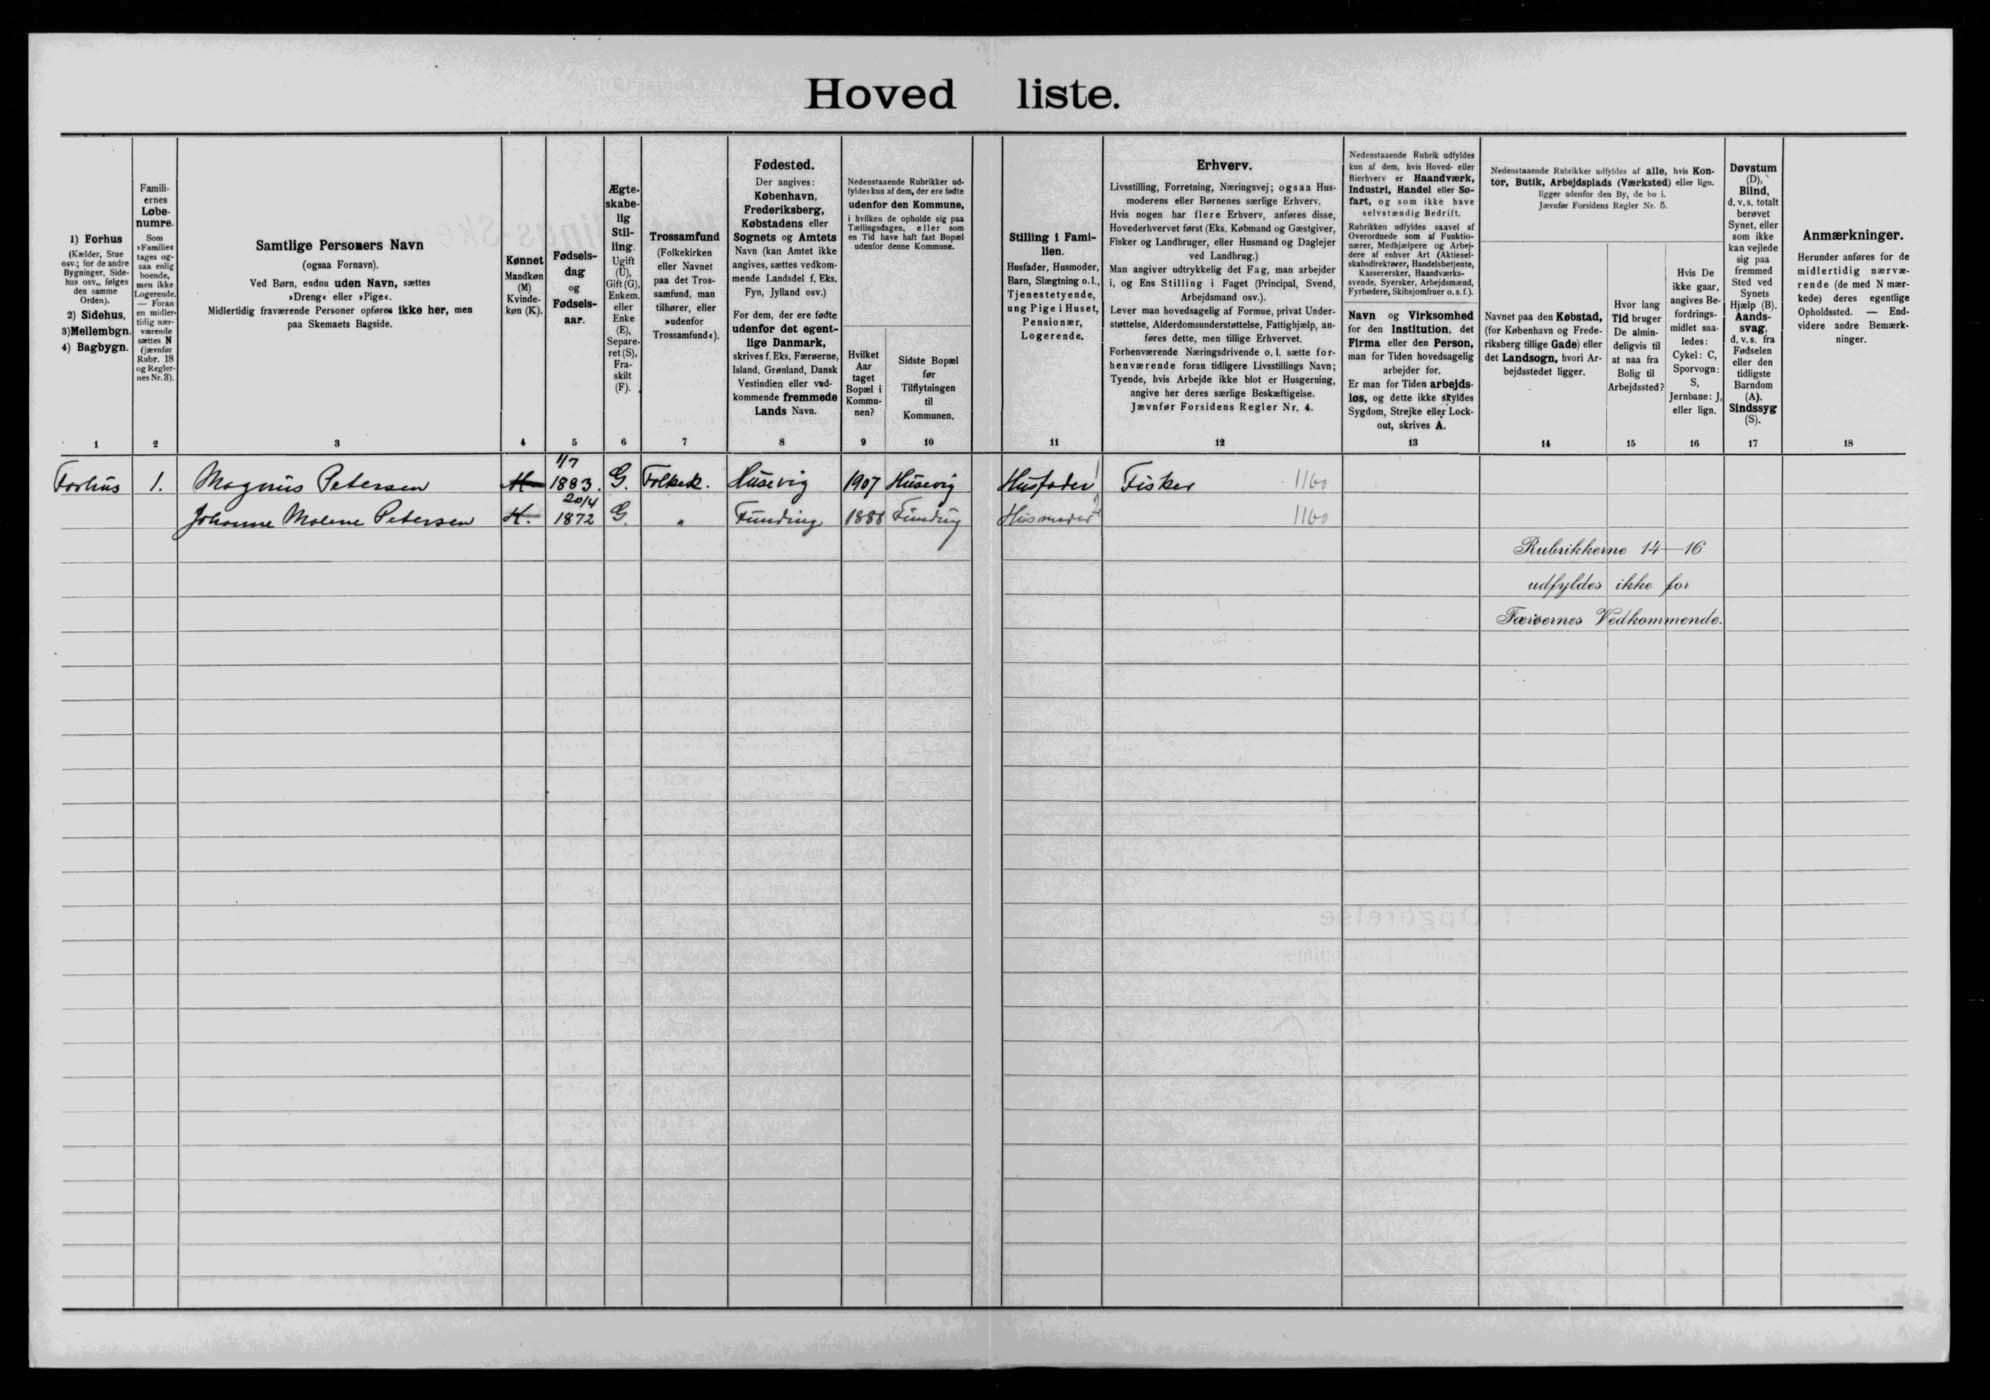 Hoved liste.
1) Forhus
(Kælder, Stue
osv.; for de andre
Bygninger, Side-
hus osv., følges
den samme
Orden).
2) Sidehus,
3) Mellembgn.
4) Bagbygn.
Famili-
ernes
Løbe-
numre.
Som
»Familie«
tages og-
saa enlig
boende,
men ikke
Logerende.
— Foran
en midler-
tidig nær-
værende
sættes N
(jævnfør
Rubr. 18
og Regler-
nes Nr. 3).
Samtlige Personers Navn
(ogsaa Fornavn).
Ved Børn, endnu uden Navn, sættes
»Dreng« eller »Pige«.
Midlertidig fraværende Personer opføres ikke her, men
paa Skemaets Bagside.
Kønnet
Mandkøn
(M)
Kvinde-
køn (K).
Fødsels-
dag
og
Fødsels-
aar.
Ægte-
skabe-
lig
Stil-
ling.
Ugift
(U),
Gift (G),
Enkem.
eller
Enke
(E),
Separe-
ret (S),
Fra-
skilt
(F).
Trossamfund
(Folkekirken
eller Navnet
paa det Tros-
samfund, man
tilhører, eller
»udenfor
Trossamfund«).
Fødested.
Der angives:
København,
Frederiksberg,
Købstadens eller
Sognets og Amtets
Navn (kan Amtet ikke
angives, sættes vedkom-
mende Landsdel f. Eks.
Fyn, Jylland osv.)
For dem, der ere fødte
udenfor det egent-
lige Danmark,
skrives f. Eks. Færøerne,
Island, Grønland, Dansk
Vestindien eller ved-
kommende fremmede
Lands Navn.
Nedenstaaende Rubrikker ud-
fyldes kun af dem, der ere fødte
udenfor den Kommune,
i hvilken de opholde sig paa
Tællingsdagen, eller som
en Tid have haft fast Bopæl
udenfor denne Kommune.
Hvilket
Aar
taget
Bopæl i
Kommu-
nen?
Sidste Bopæl
før
Tilflytningen
til
Kommunen.
Stilling i Fami-
lien.
Husfader, Husmoder,
Barn, Slægtning o.l.,
Tjenestetyende,
ung Pige i Huset,
Pensionær,
Logerende.
Erhverv.
Livsstilling, Forretning, Næringsvej; ogsaa Hus-
moderens eller Børnenes særlige Erhverv.
Hvis nogen har flere Erhverv, anføres disse,
Hovederhvervet først (Eks. Købmand og Gæstgiver,
Fisker og Landbruger, eller Husmand og Daglejer
ved Landbrug.)
Man angiver udtrykkelig det Fag, man arbejder
i, og Ens Stilling i Faget (Principal, Svend,
Arbejdsmand osv.).
Lever man hovedsagelig af Formue, privat Under-
støttelse, Alderdomsunderstøttelse, Fattighjælp, an-
føres dette, men tillige Erhvervet.
Forhenværende Næringsdrivende o. l. sætte for-
henværende foran tidligere Livsstillings Navn;
Tyende, hvis Arbejde ikke blot er Husgerning,
angive her deres særlige Beskæftigelse.
Jævnfør Forsidens Regler Nr. 4.
Nedenstaaende Rubrik udfyldes
kun af dem, hvis Hoved- eller
Bierhverv er Haandværk,
Industri, Handel eller Sø-
fart, og som ikke have
selvstændig Bedrift.
Rubrikken udfyldes saavel af
Overordnede som af Funktio-
nærer, Medhjælpere og Arbej-
dere af enhver Art (Aktiesel-
skabsdirektører, Handelsbetjente,
Kasserersker, Haandværks-
svende, Syersker, Arbejdsmænd,
Fyrbødere, Skibsjomfruer o. s. f.).
Navn og Virksomhed
for den Institution, det
Firma eller den Person,
man for Tiden hovedsagelig
arbejder for.
Er man for Tiden arbejds-
løs, og dette ikke skyldes
Sygdom, Strejke eller Lock-
out, skrives A.
Nedenstaaende Rubrikker udfyldes af alle, hvis Kon-
tor, Butik, Arbejdsplads (Værksted) eller lign.
ligger udenfor den By, de bo i.
Jævnfør Forsidens Regler Nr. 5.
Navnet paa den Købstad,
(for København og Frede-
riksberg tillige Gade) eller
det Landsogn, hvori Ar-
bejdsstedet ligger.
Hvor lang
Tid bruger
De almin-
deligvis til
at naa fra
Bolig til
Arbejdssted?
Hvis De
ikke gaar,
angives Be-
fordrings-
midlet saa-
ledes:
Cykel: C,
Sporvogn:
S,
Jernbane: J,
eller lign.
Døvstum
(D),
Blind,
d. v. s. totalt
berøvet
Synet, eller
som ikke
kan vejlede
sig paa
fremmed
Sted ved
Synets
Hjælp (B).
Aands-
svag,
d. v. s. fra
Fødselen
eller den
tidligste
Barndom
(A).
Sindssyg
(S).
Anmærkninger.
Herunder anføres for de
midlertidig nærvæ-
rende (de med N mær-
kede) deres egentlige
Opholdssted. — End-
videre andre Bemærk-
ninger.
1 2 3 4 5 6 7 8 9 10 11 12 13 14 15 16 17 18
Forhus 1. Magnus Petersen M 1/7 1883. G. Folkek. Husevig 1907 Husevig Husfader Fisker 1160
Johanne Malene Petersen K. 20/4 1872 G. " Funding 1888 Funding Husmoder 1160
Rubrikkerne 14—16
udfyldes ikke for
Færøernes Vedkommende.